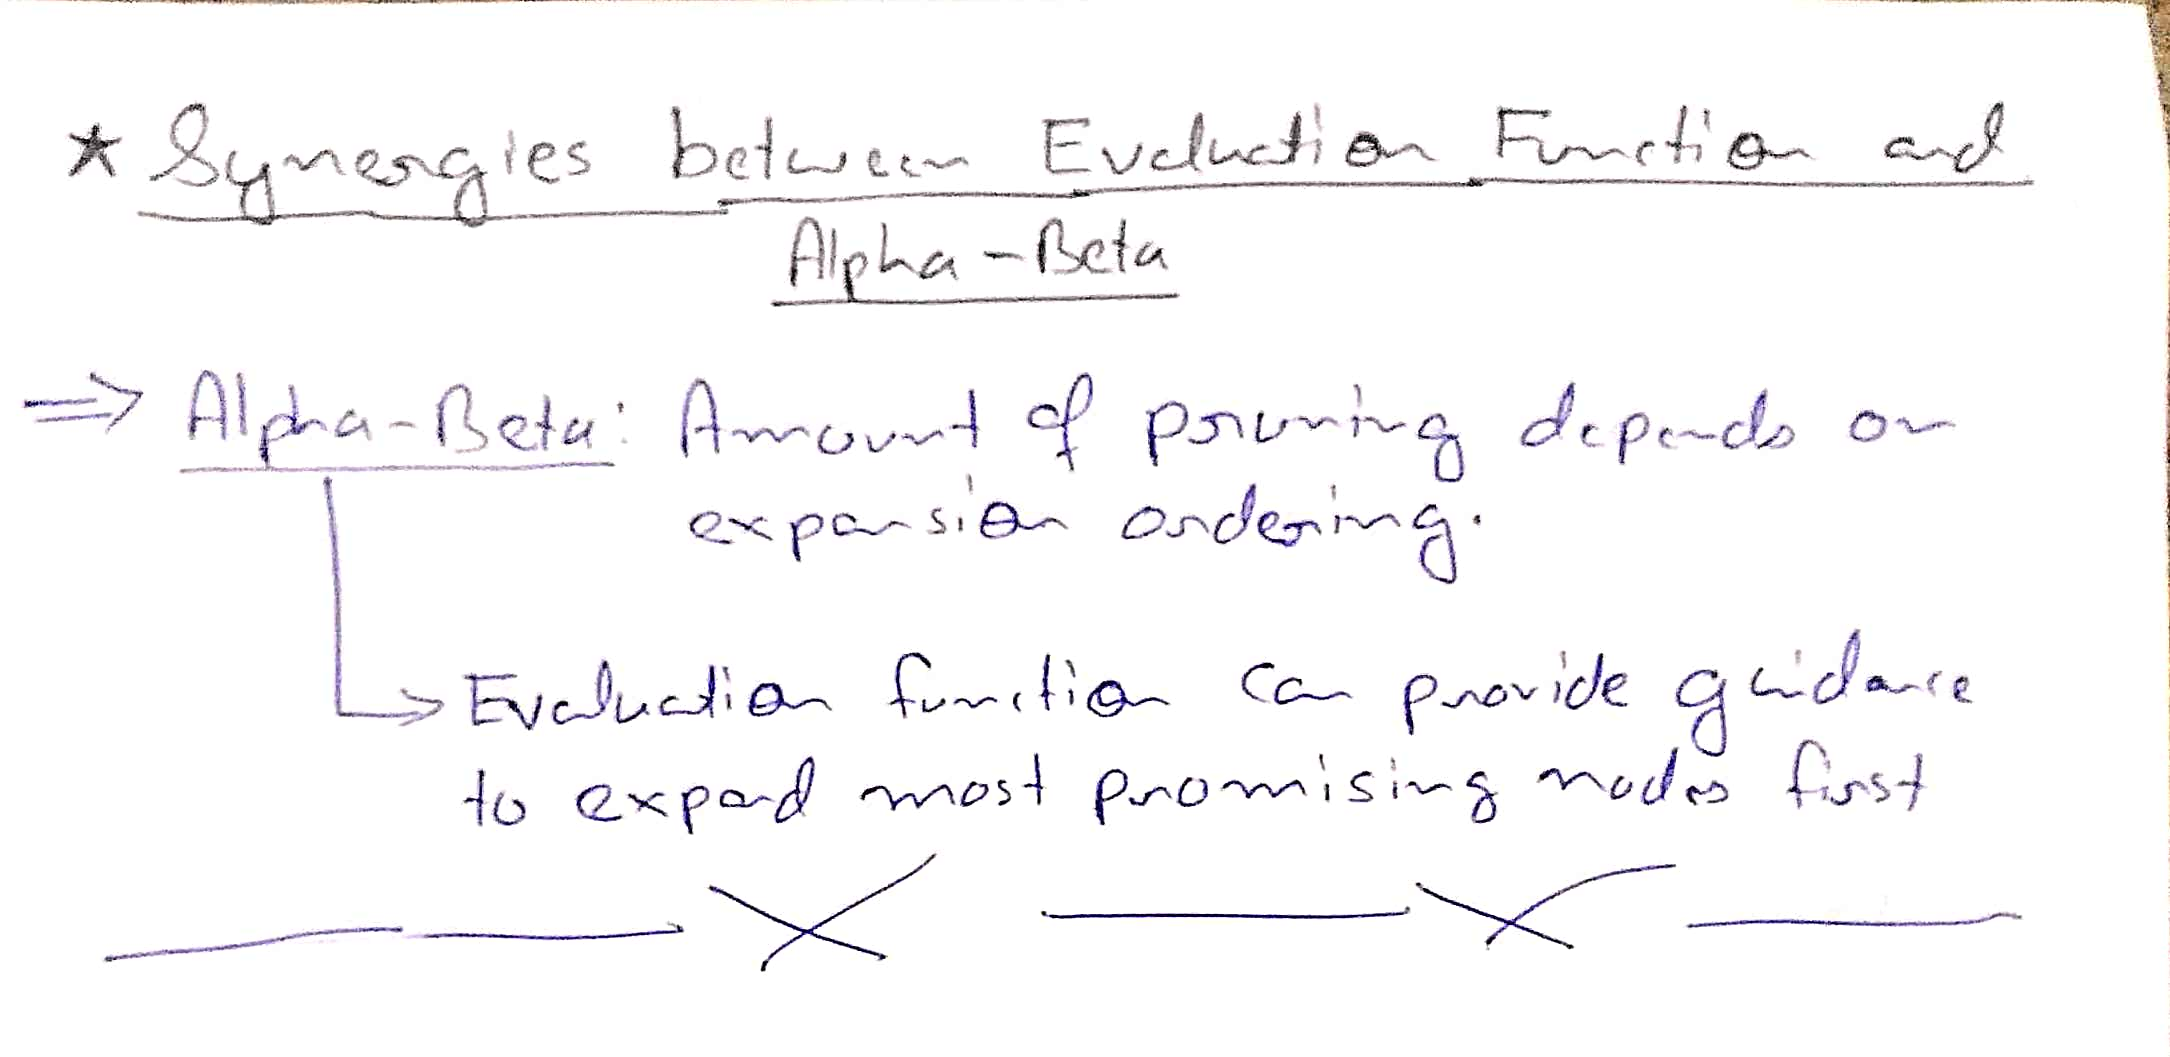 * Synergies between Evaluation Function and
Alpha-Beta
=> Alpha-Beta: Amount of pruning depends on
expansion ordering.
Evaluation function can provide guidance
to expand most promising nodes first